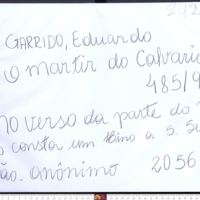 242
GARRIDO, Eduardo
O martir do Calvario
485/9
No verso da parte do
consta um Hino a S. Se
ão. anônimo 2056